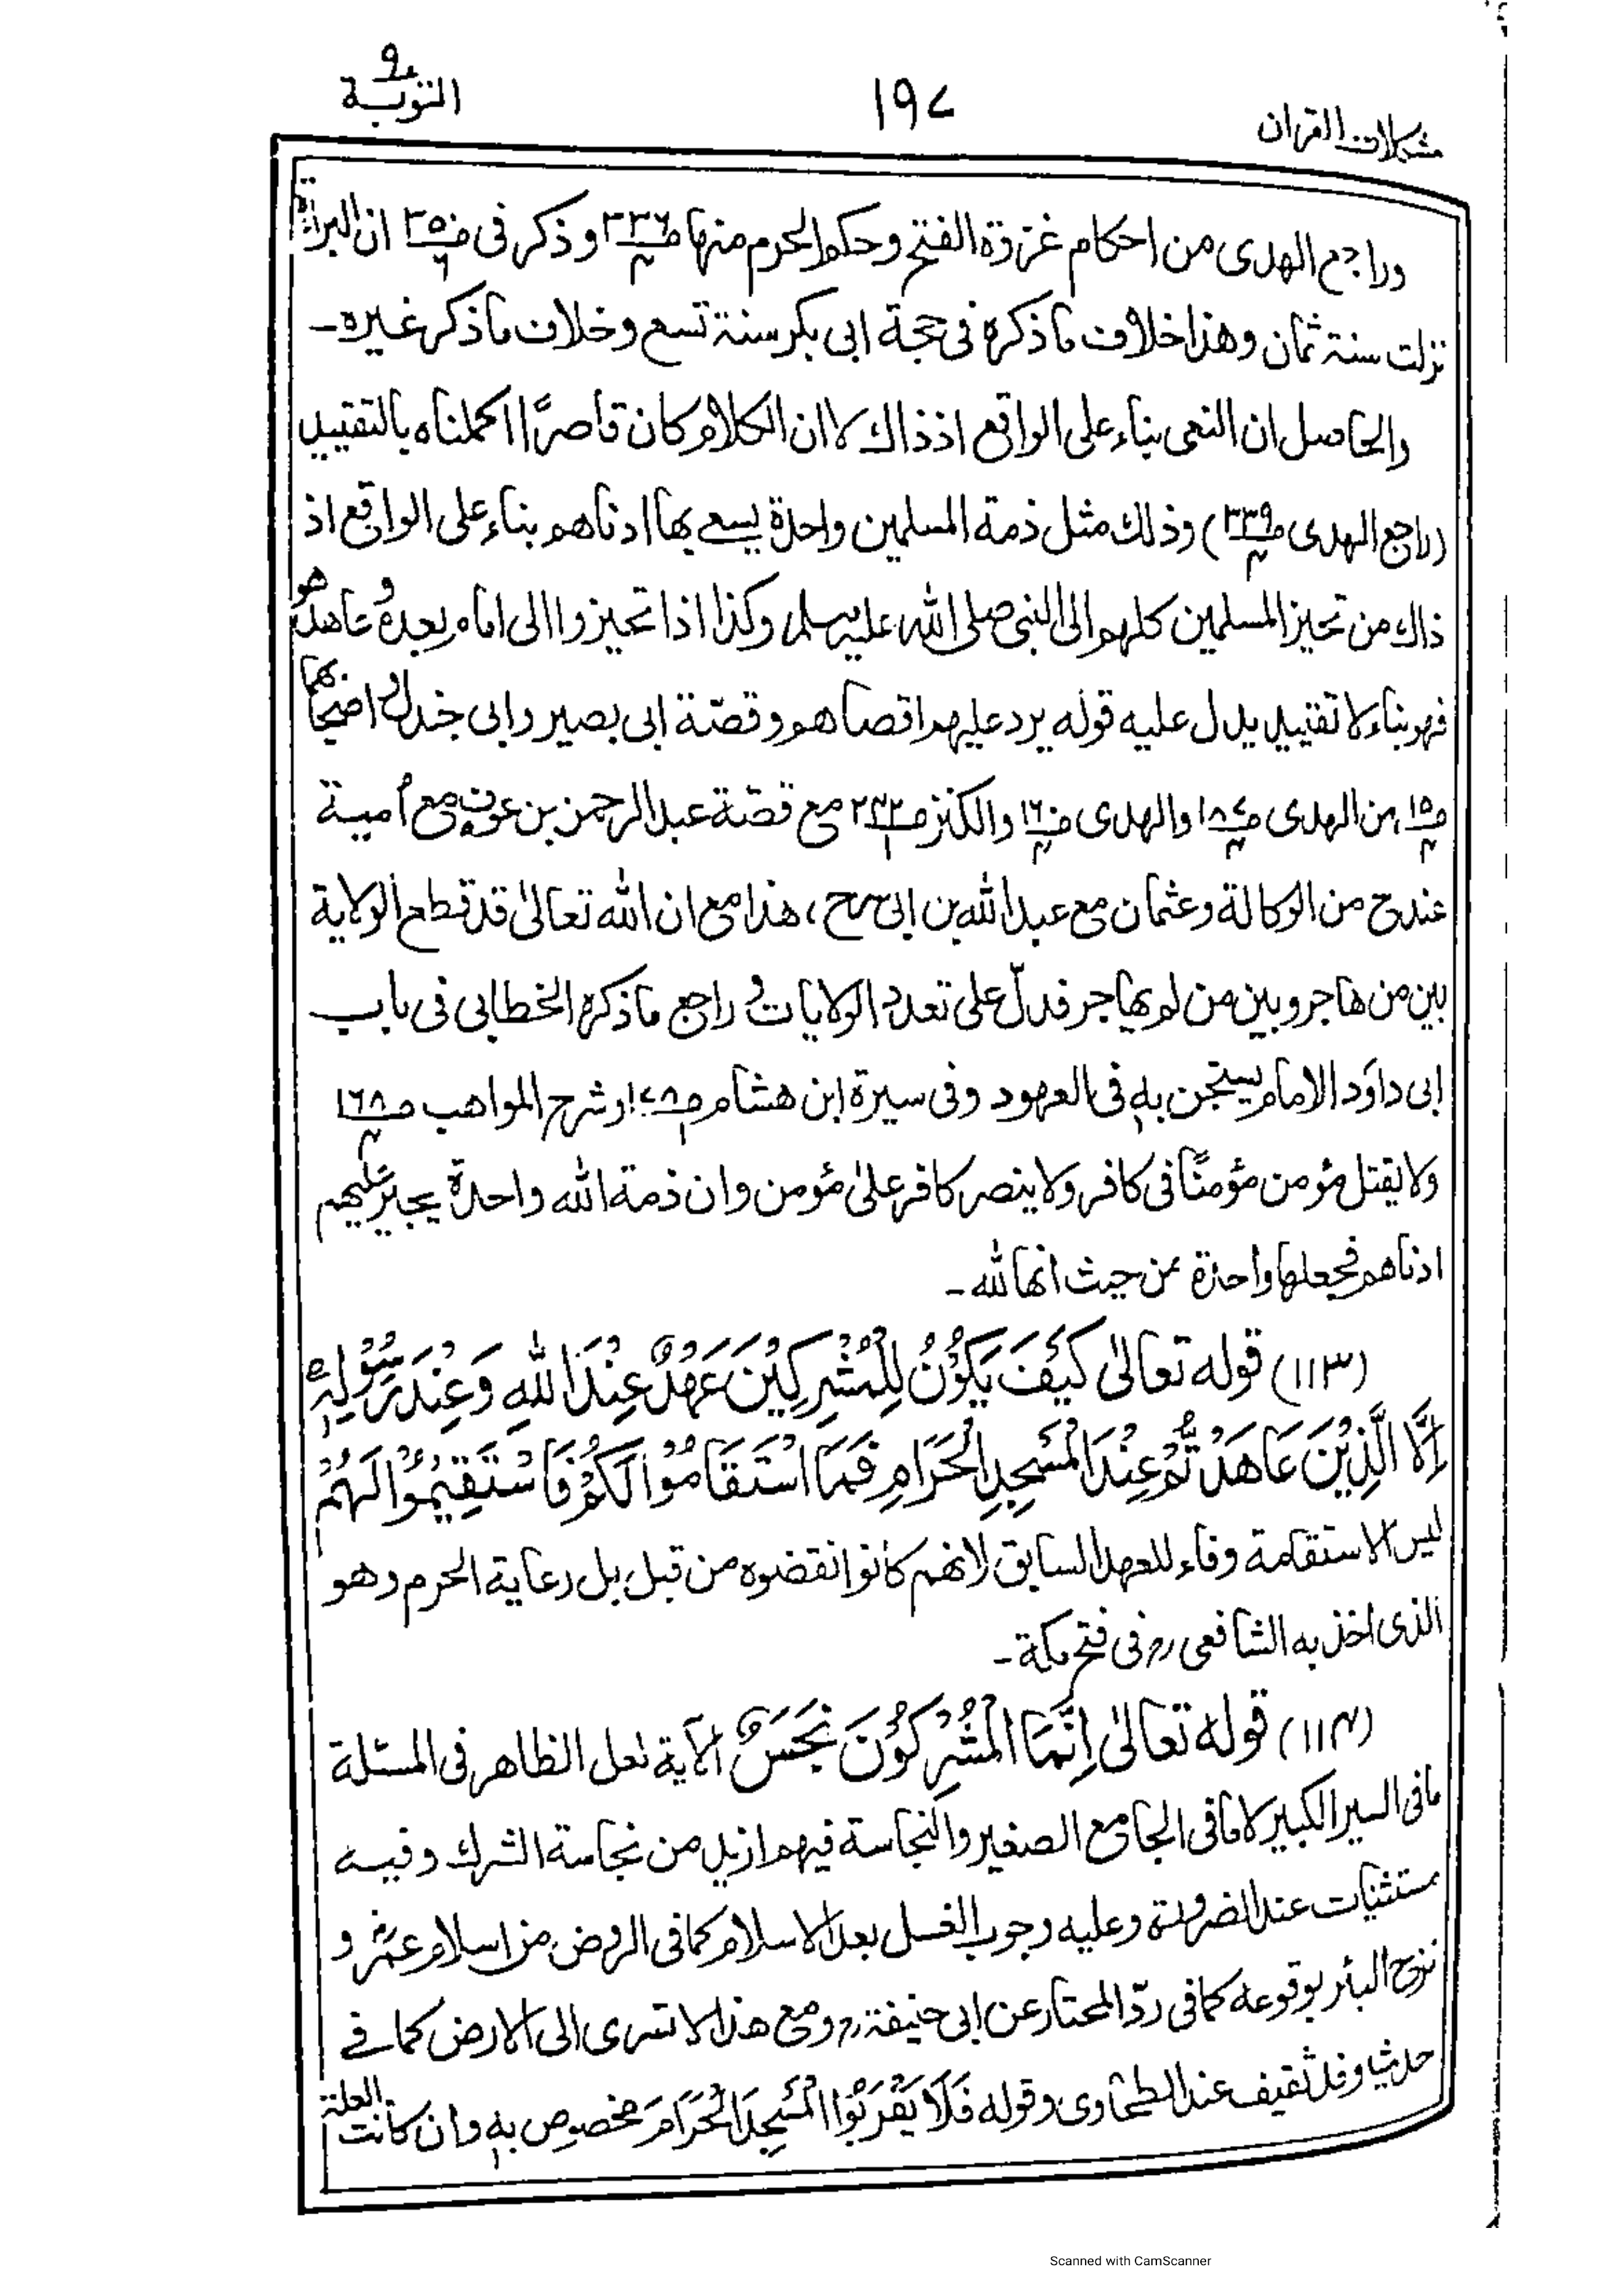 مشكلات القران
١٩٧
التوبة ٩
وراجع الهدى من احكام غزوة الفتح وحكم الحرم منها ص٣٣٦ ج٣ وذكر فى ص٣٥ ج٢ ان البراءة
نزلت سنة ثمان وهذا خلاف ما ذكره فى حجة ابى بكر سنة تسع وخلاف ما ذكر غيره -
والحاصل ان النعى بناء على الواقع اذ ذاك لا ان الكلام كان قاصرًا اكملناه بالتقييد
(راجع الهدى ص٣٣٩) وذلك مثل ذمة المسلمين واحدة يسعى بها ادناهم بناء على الواقع اذ
ذاك من تحيز المسلمين كلهم الى النبى صلى الله عليه وسلم وكذا اذا تحيزوا الى امام بعده وعاهد هو
فهو بناء لا تقييد يدل عليه قوله يرد عليهم اقصاهم وقصّة ابى بصير وابى جندل واضحابهما
ص١٥ من الهدى ص١٨٧ والهدى ص١٦ والكنز ص٢٣٢ مع قصّة عبد الرحمن بن عوف مع أمية
عندح من الوكالة وعثمان مع عبد الله بن ابى سرح، هذا مع ان الله تعالىٰ قد قطع الولاية
بين من هاجر وبين من لم يهاجر فدلّ على تعدد الولايات وراجع ما ذكره الخطابى فى باب
ابى داؤد الامام يستجن به فى العهود وفى سيرة ابن هشام ص١٧٨ وشرح المواهب ص١٦٨
ولا يقتل مؤمن مؤمنًا فى كافر ولا ينصر كافر علىٰ مؤمن وان ذمة الله واحدة يجير عليهم
ادناهم فجعلها واحدة من حيث انها لله -
(١١٣) قوله تعالىٰ كَيْفَ يَكُوْنُ لِلْمُشْرِكِيْنَ عَهْدٌ عِنْدَ اللهِ وَعِنْدَ رَسُوْلِهٖ
اِلَّا الَّذِيْنَ عَاهَدْتُّمْ عِنْدَ الْمَسْجِدِ الْحَرَامِ فَمَا اسْتَقَامُوْا لَكُمْ فَاسْتَقِيْمُوْا لَهُمْ
ليس الاستقامة وفاء للعهد السابق لانهم كانوا نقضوه من قبل بل رعاية الحرم وهو
الذى اخذ به الشافعى رح فى فتح مكة -
(١١٤) قوله تعالىٰ اِنَّمَا الْمُشْرِكُوْنَ نَجَسٌ الآية لعل الظاهر فى المسئلة
مافى السير الكبير لا مافى الجامع الصغير والنجاسة فيهم ازيد من نجاسة الشرك وفيه
مستثنيات عند الضرورة وعليه وجوب الغسل بعد الاسلام كما فى الروض من اسلام عمر رض و
نزح البئر بوقوعه كما فى ردّ المحتار عن ابى حنيفة رح ومع هذا لا تسرى الى الارض كما فى
حديث وفد ثقيف عند الطحاوى وقوله فَلَا يَقْرَبُوا الْمَسْجِدَ الْحَرَامَ مخصوص به وان كانت العلة
Scanned with CamScanner